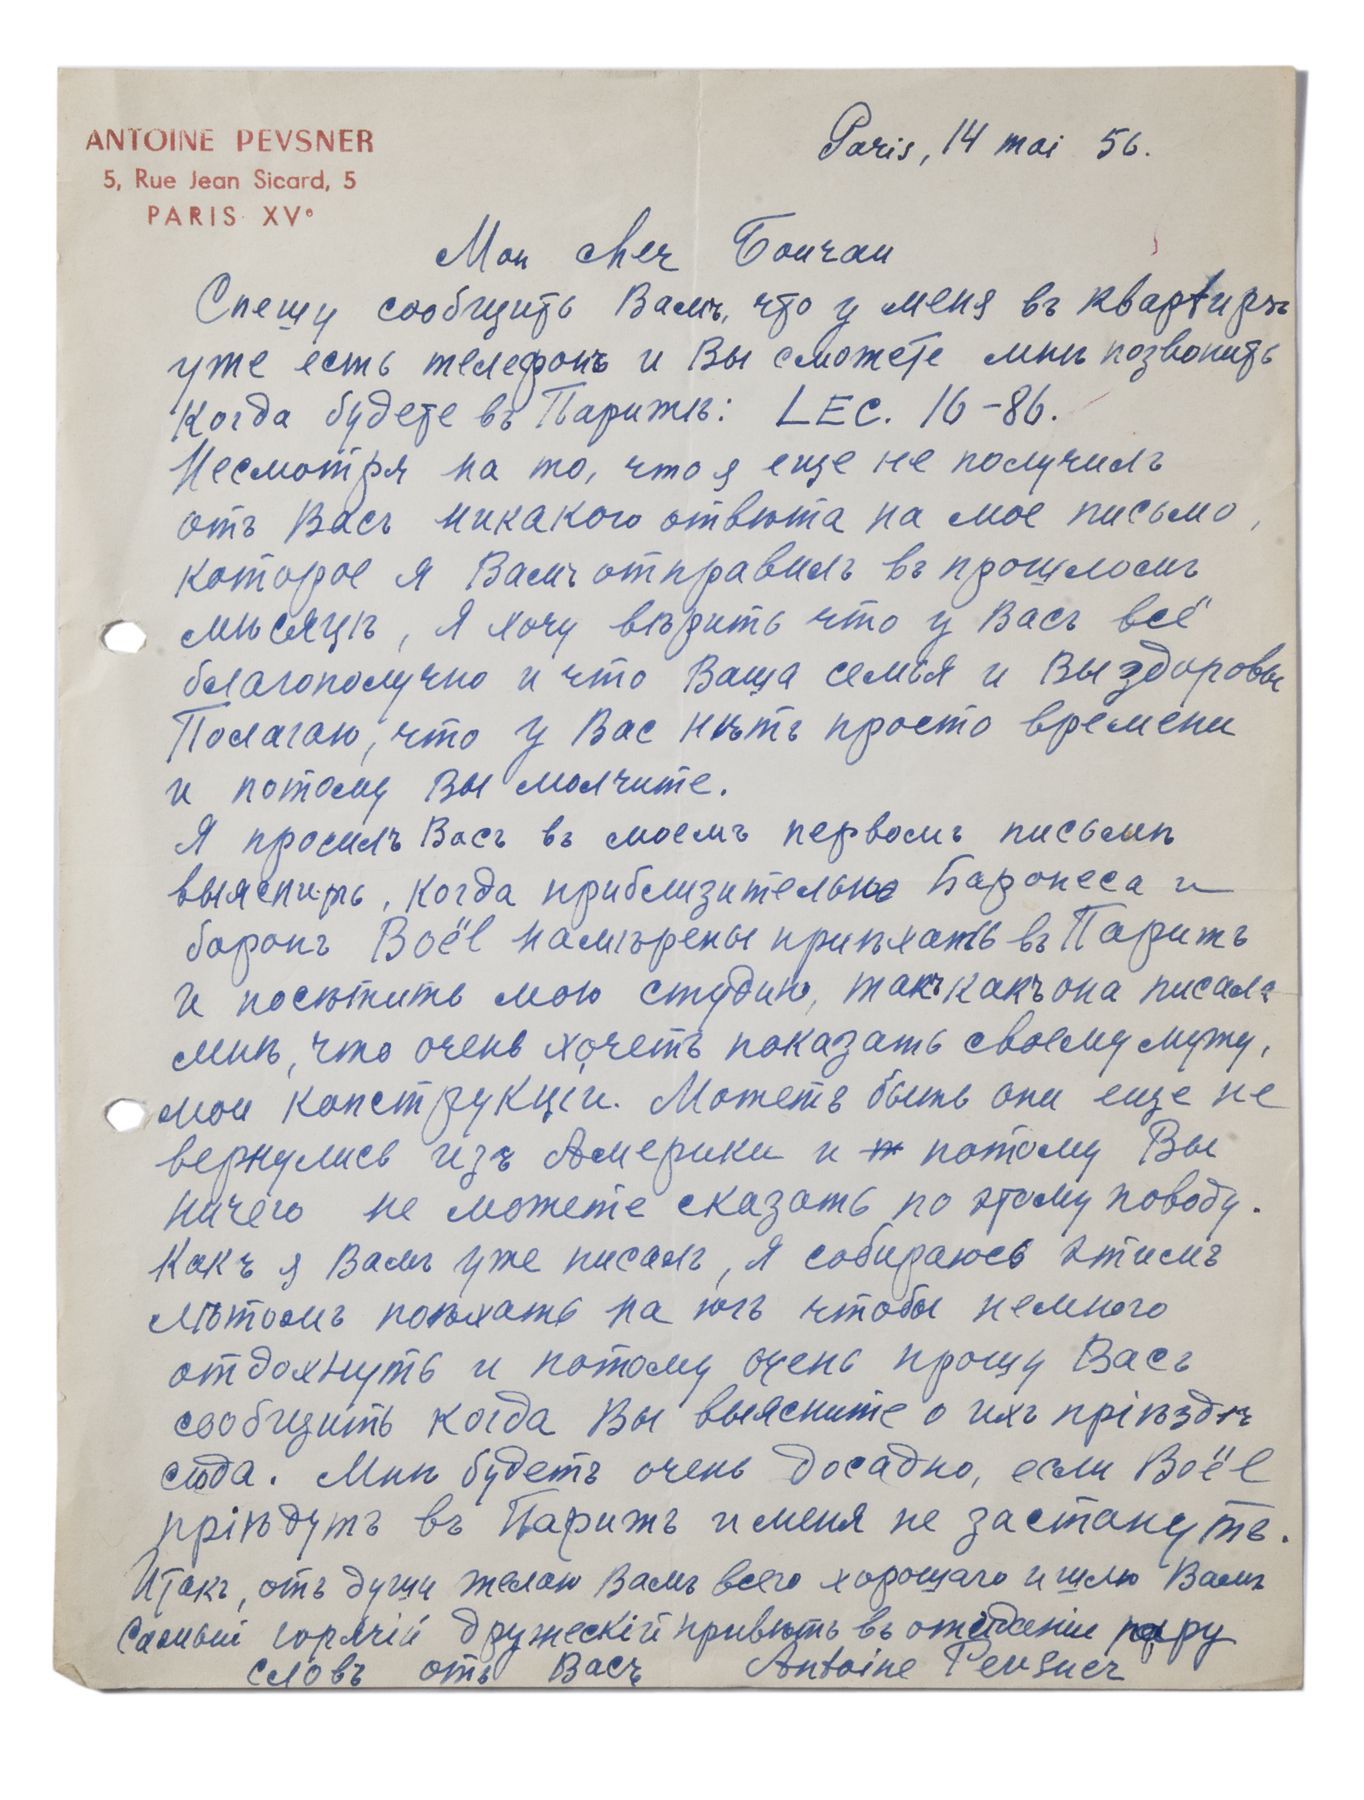 ANTOINE PEVSNER
5, Rue Jean Sicard, 5
PARIS XVe
Paris, 14 mai 56.
Mon cher
Спешу сообщить Вамъ, что у меня въ квартирѣ
уже есть телефонъ и Вы сможете мнѣ позвонить
когда будете въ Парижѣ: LEC. 16-86.
Несмотря на то, что я еще не получилъ
отъ Васъ никакого отвѣта на мое письмо,
которое я Вамъ отправилъ въ прошломъ
мѣсяцѣ, я хочу вѣрить что у Васъ всё
благополучно и что Ваша семья и Вы здоровы
Полагаю, что у Вас нѣтъ просто времени
и потому Вы молчите.
Я просилъ Васъ въ моемъ первомъ письмѣ
выяснить, когда приблизительно Баронеса и
баронъ Воёl намѣрены приѣхать въ Парижъ
и посѣтить мою студию, такъ какъ она писала
мнѣ, что очень хочетъ показать своему мужу,
мои конструкціи. Можетъ быть они еще не
вернулись изъ Америки и потому Вы
ничего не можете сказать по этому поводу.
Какъ я Вамъ уже писалъ, я собираюсь этимъ
лѣтомъ поѣхать на югъ чтобы немного
отдохнуть и потому очень прошу Васъ
сообщить когда Вы выясните о ихъ пріѣздѣ
сюда. Мнѣ будетъ очень досадно, если Воёl
пріѣдутъ въ Парижъ и меня не застанутъ.
Итакъ, отъ души желаю Вамъ всего хорошаго и шлю Вамъ
самый горячій дружескій привѣтъ въ ожиданіи пару
словъ отъ Васъ Antoine Pevsner